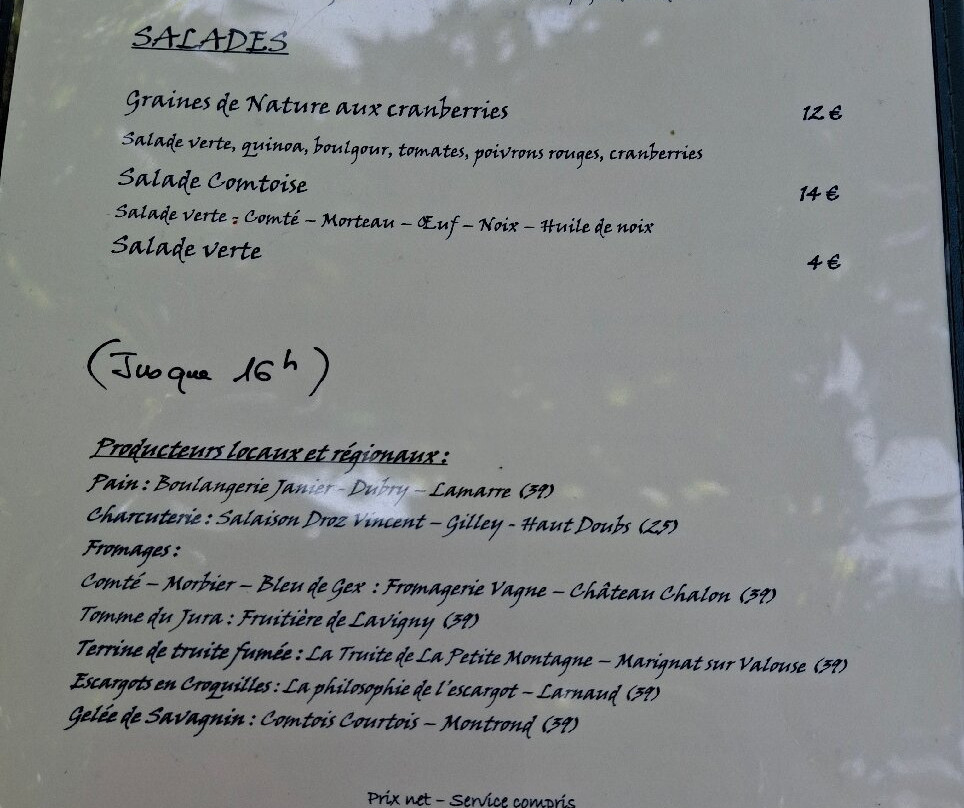 SALADES
Graines de Nature aux cranberries 12 €
Salade verte, quinoa, boulgour, tomates, poivrons rouges, cranberries
Salade Comtoise 14 €
Salade verte : Comté – Morteau – Œuf – Noix – Huile de noix
Salade verte 4 €
(Jusque 16h)
Producteurs locaux et régionaux :
Pain : Boulangerie Janier - Dubry – Lamarre (39)
Charcuterie : Salaison Droz Vincent – Gilley - Haut Doubs (25)
Fromages :
Comté – Morbier – Bleu de Gex : Fromagerie Vagne – Château Chalon (39)
Tomme du Jura : Fruitière de Lavigny (39)
Terrine de truite fumée : La Truite de La Petite Montagne – Marignat sur Valouse (39)
Escargots en Croquilles : La philosophie de l'escargot – Larnaud (39)
Gelée de Savagnin : Comtois Courtois – Montrond (39)
Prix net – Service compris